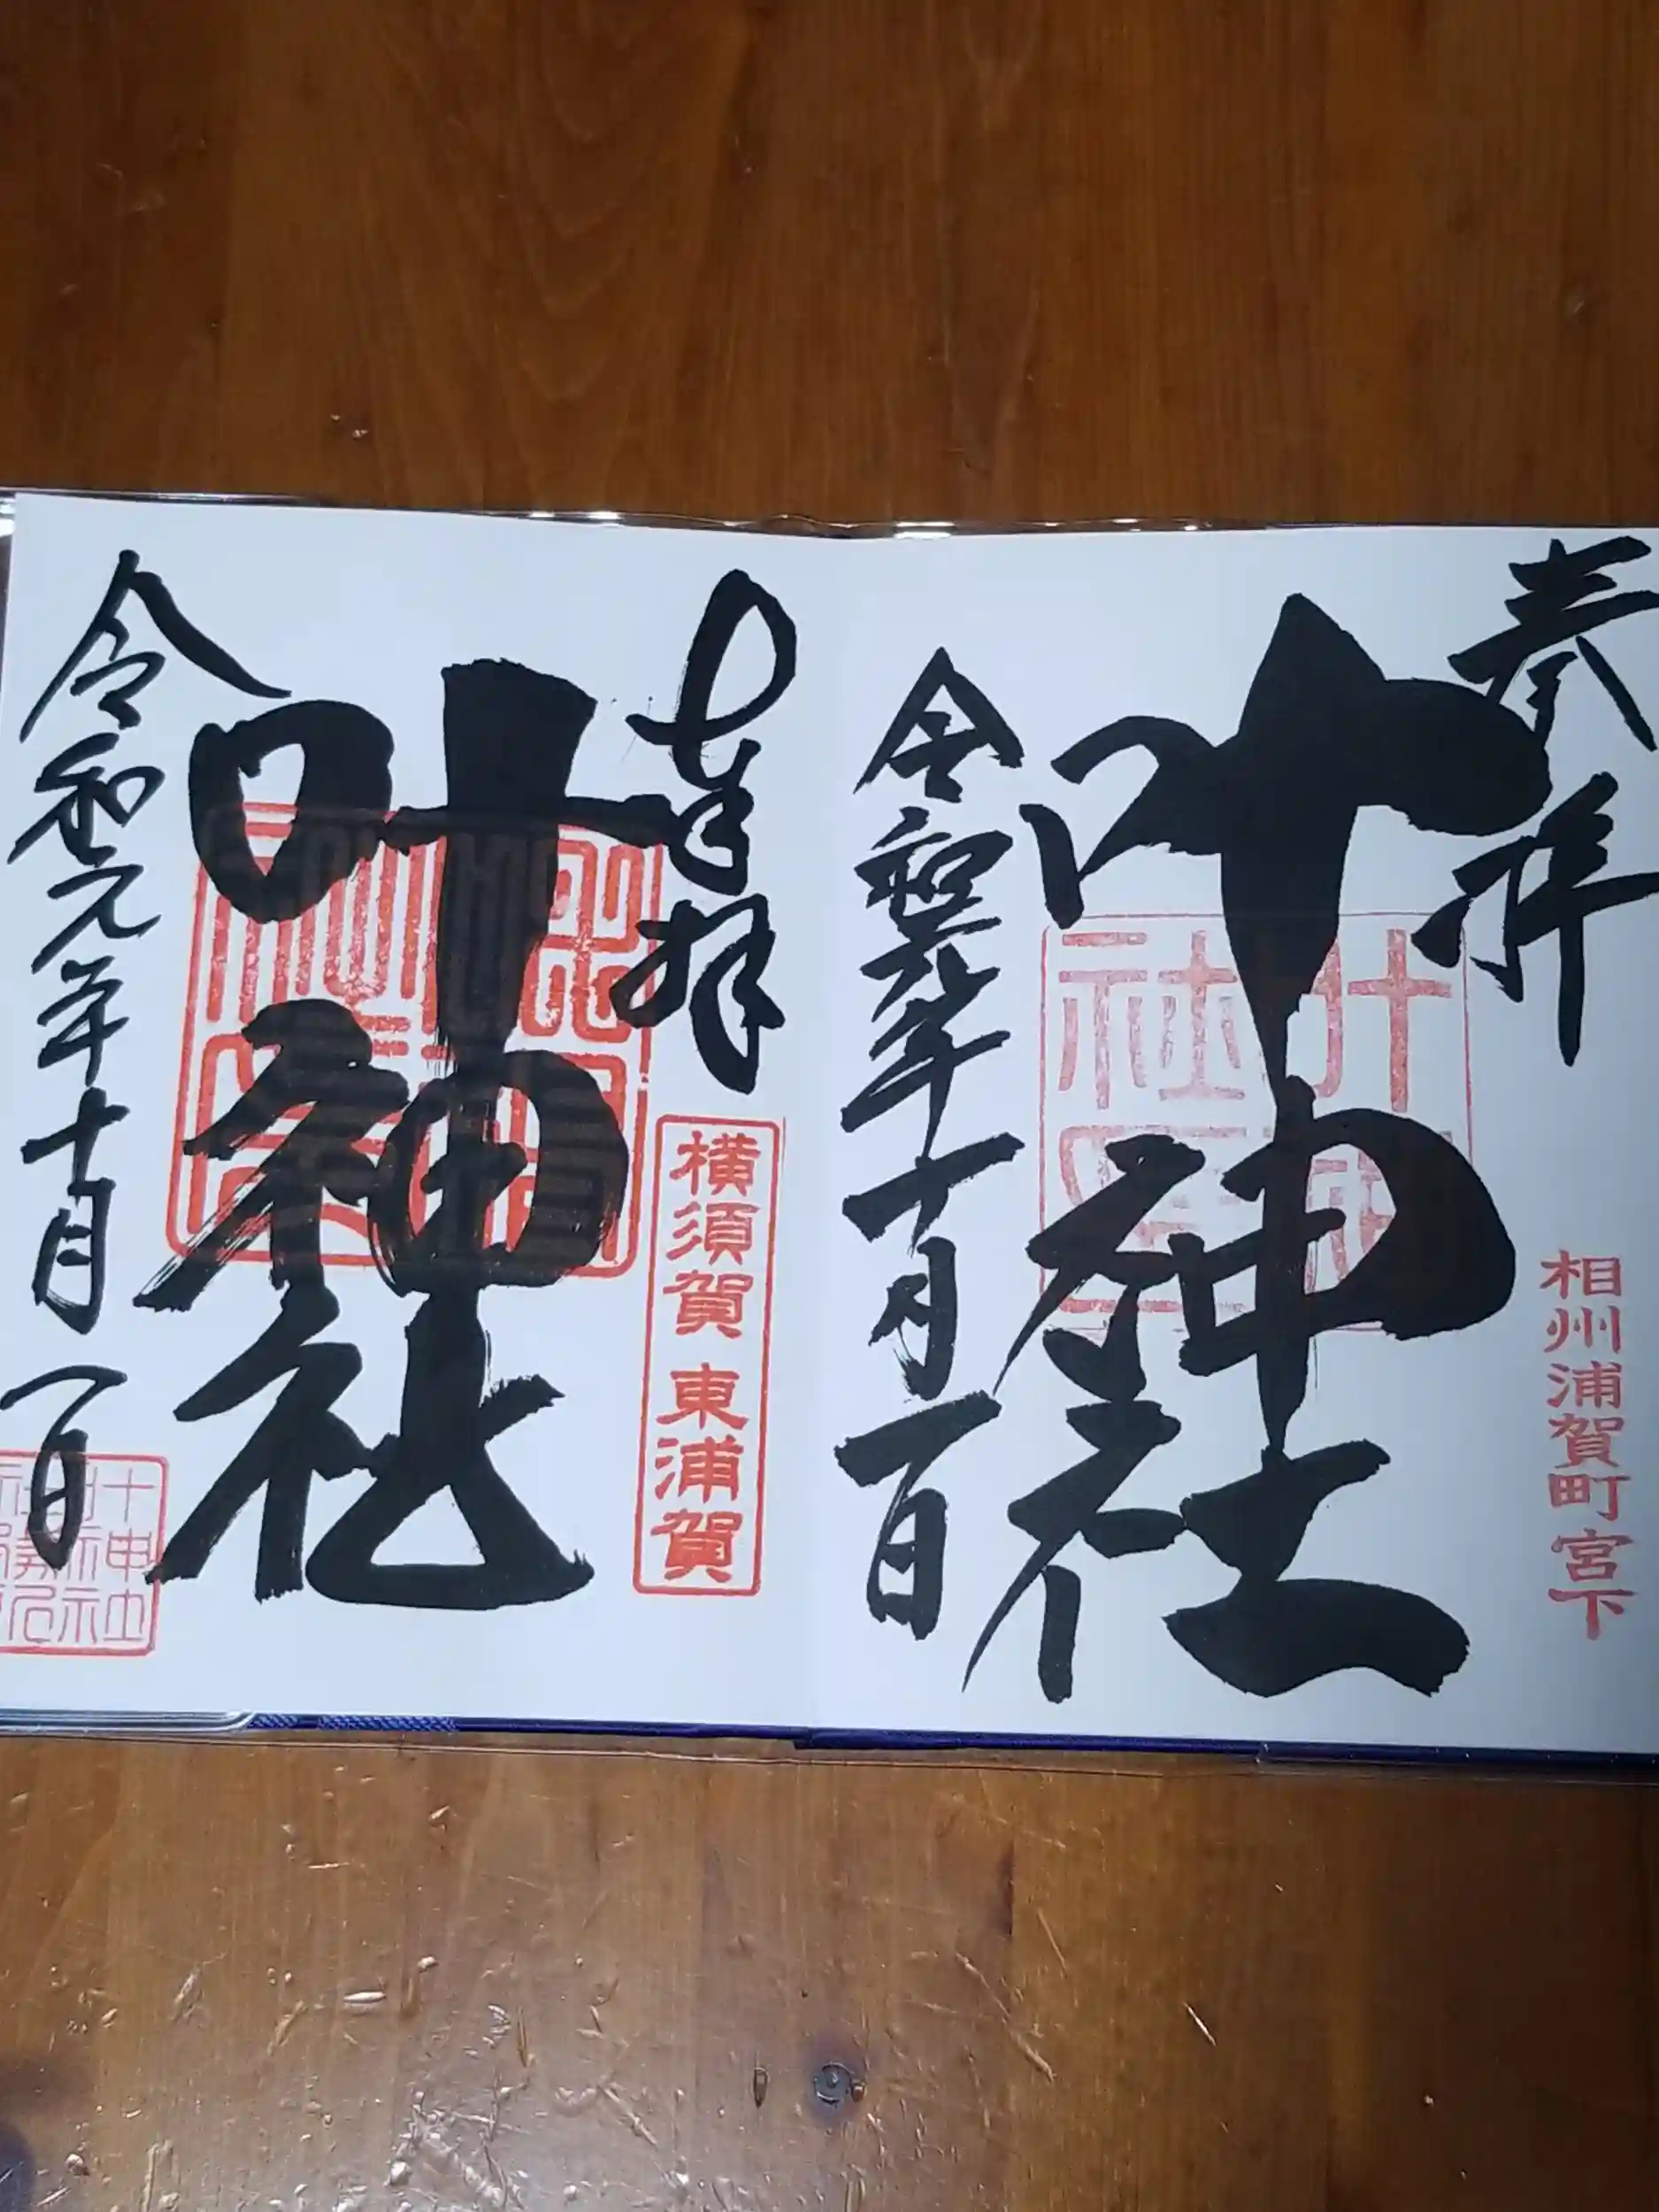 奉拝
相州浦賀町宮下
叶神社
令和元年十一月一日
奉拝
横須賀 東浦賀
叶神社
令和元年十一月一日